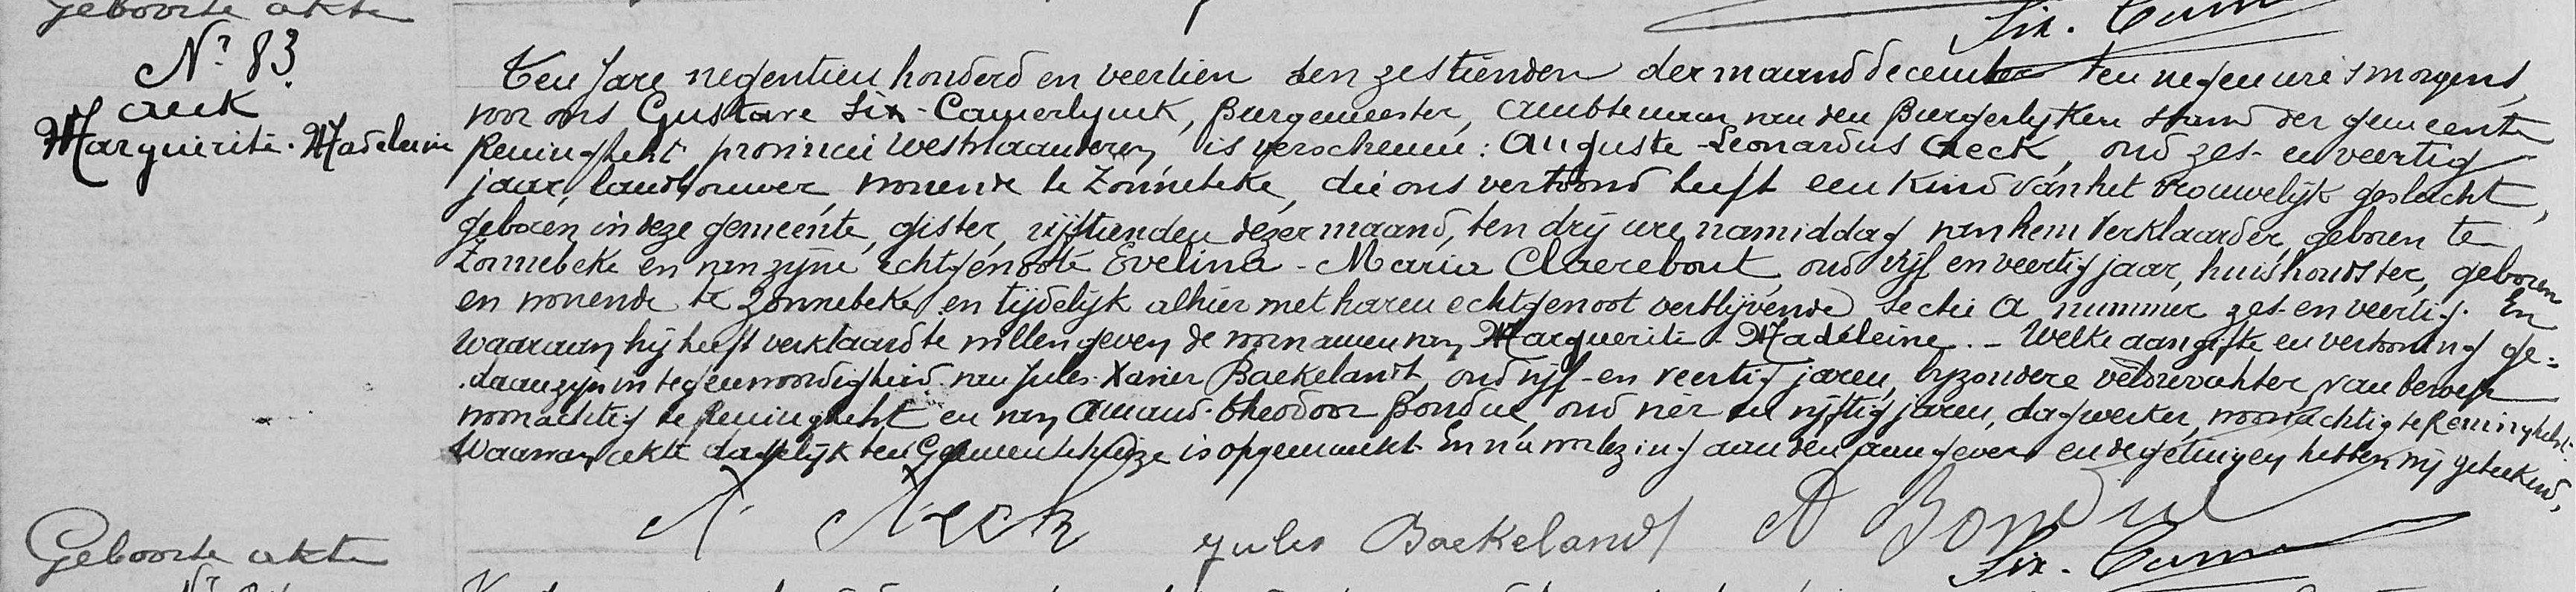 Geboorte akte
Six. Cam
Nr 83
Aeck
Marguerite. Madeleine
Ten Jare negentien honderd en veertien den zestienden der maand december ten negen ure 's morgens,
voor ons Gustave Six-Camerlynck, Burgemeester, Ambtenaar van den Burgerlyken stand der gemeente
Reninghelst provincie Westvlaanderen, is verschenen: Auguste-Leonardus Aeck, oud zes-en veertig
jaar, landbouwer, wonende te Zonnebeke, die ons vertoond heeft een kind van het vrouwelijk geslacht,
geboren in deze gemeente, gister, vijftienden dezer maand, ten drij ure namiddag van hem Verklaarder, geboren te
Zonnebeke en van zijne echtgenoote Evelina-Maria Claerebout, oud vijf en veertig jaar, huishoudster, geboren
en wonende te Zonnebeke en tijdelijk alhier met haren echtgenoot verblijvende sectie A nummer zes-en veertig. En
waaraan hij heeft verklaard te willen geven de voornamen van Marguerite-Madeleine. - Welke aangifte en vertooning ge=
daan zijn in tegenwoordigheid van Jules-Xavier Baekelandt, oud vijf-en veertig jaren, byzondere veldwachter van beroep
woonachtig te Reninghelst en van Amand-Theodoor Bondue, oud vier en vijftig jaren, dagwerker, woonachtig te Reninghelst.
Waarvan akte dadelijk ten Gemeentehuize is opgemaakt. En na voorlezing aan den aangever en de getuigen hebben wij geteekend,
A. Aeck Jules Baekelandt A Bondue
Six. Cam
Geboorte akte